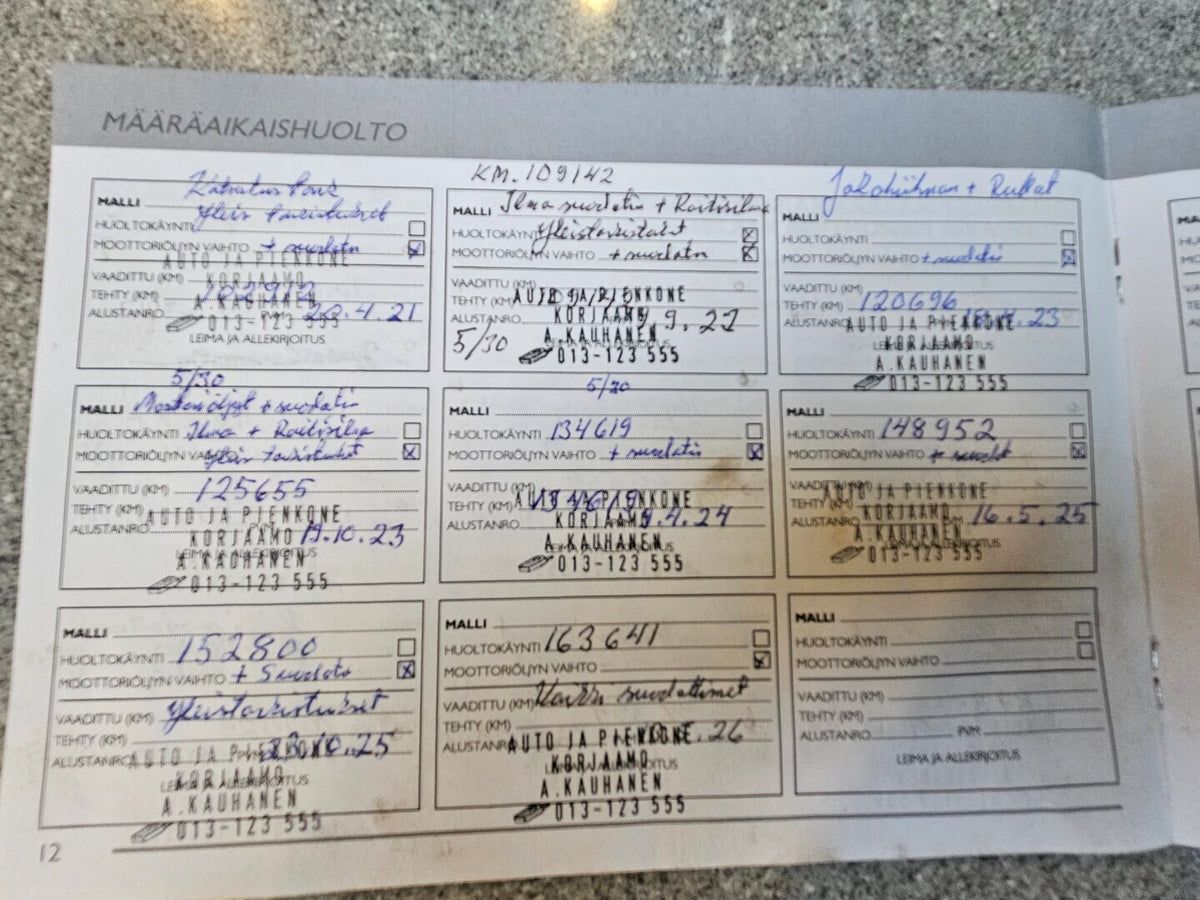 MÄÄRÄAIKAISHUOLTO
MALLI
Yleis tarkistukset
HUOLTOKÄYNTI
MOOTTORIÖLJYN VAIHTO + suodatin
AUTO JA PIENKONE
VAADITTU (KM) KORJAAMO
TEHTY (KM) A.KAUHANEN
ALUSTANRO PVM .4.21
013-123 555
LEIMA JA ALLEKIRJOITUS
KM. 109142
MALLI Ilma suodatin + Raitisilma
HUOLTOKÄYNTI Yleistarkistukset
MOOTTORIÖLJYN VAIHTO + suodatin
VAADITTU (KM)
TEHTY (KM) AUTO JA PIENKONE
ALUSTANRO KORJAAMO .9.22
5/30 A.KAUHANEN
013-123 555
Jakohihnan + Rullat
MALLI
HUOLTOKÄYNTI
MOOTTORIÖLJYN VAIHTO + suodatin
VAADITTU (KM)
TEHTY (KM) 120696
ALUSTANRO AUTO JA PIENKONE .23
KORJAAMO
A.KAUHANEN
013-123 555
5/30
MALLI Moottoriöljyt + suodatin
HUOLTOKÄYNTI Ilma + Raitisilma
MOOTTORIÖLJYN VAIHTO Yleis tarkistukset
VAADITTU (KM) 125655
TEHTY (KM) AUTO JA PIENKONE
ALUSTANRO KORJAAMO 19.10.23
LEIMA JA ALLEKIRJOITUS
A.KAUHANEN
013-123 555
5/30
MALLI
HUOLTOKÄYNTI 134619
MOOTTORIÖLJYN VAIHTO + suodatin
VAADITTU (KM)
TEHTY (KM) 134619 AUTO JA PIENKONE
ALUSTANRO KORJAAMO .4.24
A.KAUHANEN
013-123 555
MALLI
HUOLTOKÄYNTI 148952
MOOTTORIÖLJYN VAIHTO + suodat
VAADITTU (KM) AUTO JA PIENKONE
TEHTY (KM) KORJAAMO
ALUSTANRO PVM 16.5.25
A.KAUHANEN
013-123 555
MALLI
HUOLTOKÄYNTI 152800
MOOTTORIÖLJYN VAIHTO + Suodatin
VAADITTU (KM) Yleistarkistukset
TEHTY (KM)
ALUSTANRO AUTO JA PIENKONE .10.25
KORJAAMO
LEIMA JA ALLEKIRJOITUS
A.KAUHANEN
013-123 555
MALLI
HUOLTOKÄYNTI 163641
MOOTTORIÖLJYN VAIHTO
VAADITTU (KM) Kaikki suodattimet
TEHTY (KM)
ALUSTANRO AUTO JA PIENKONE .26
KORJAAMO
A.KAUHANEN
013-123 555
MALLI
HUOLTOKÄYNTI
MOOTTORIÖLJYN VAIHTO
VAADITTU (KM)
TEHTY (KM)
ALUSTANRO PVM
LEIMA JA ALLEKIRJOITUS
12